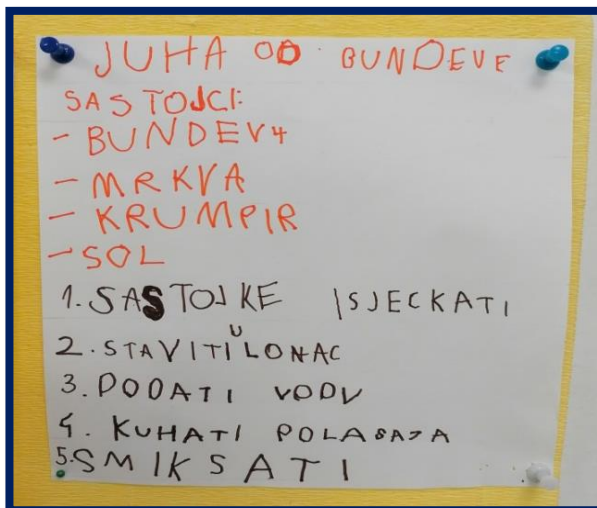 JUHA OD BUNDEVE
SASTOJCI:
- BUNDEVA
- MRKVA
- KRUMPIR
- SOL
1. SASTOJKE ISJECKATI
2. STAVITI U LONAC
3. DODATI VODU
4. KUHATI POLA SATA
5. SMIKSATI